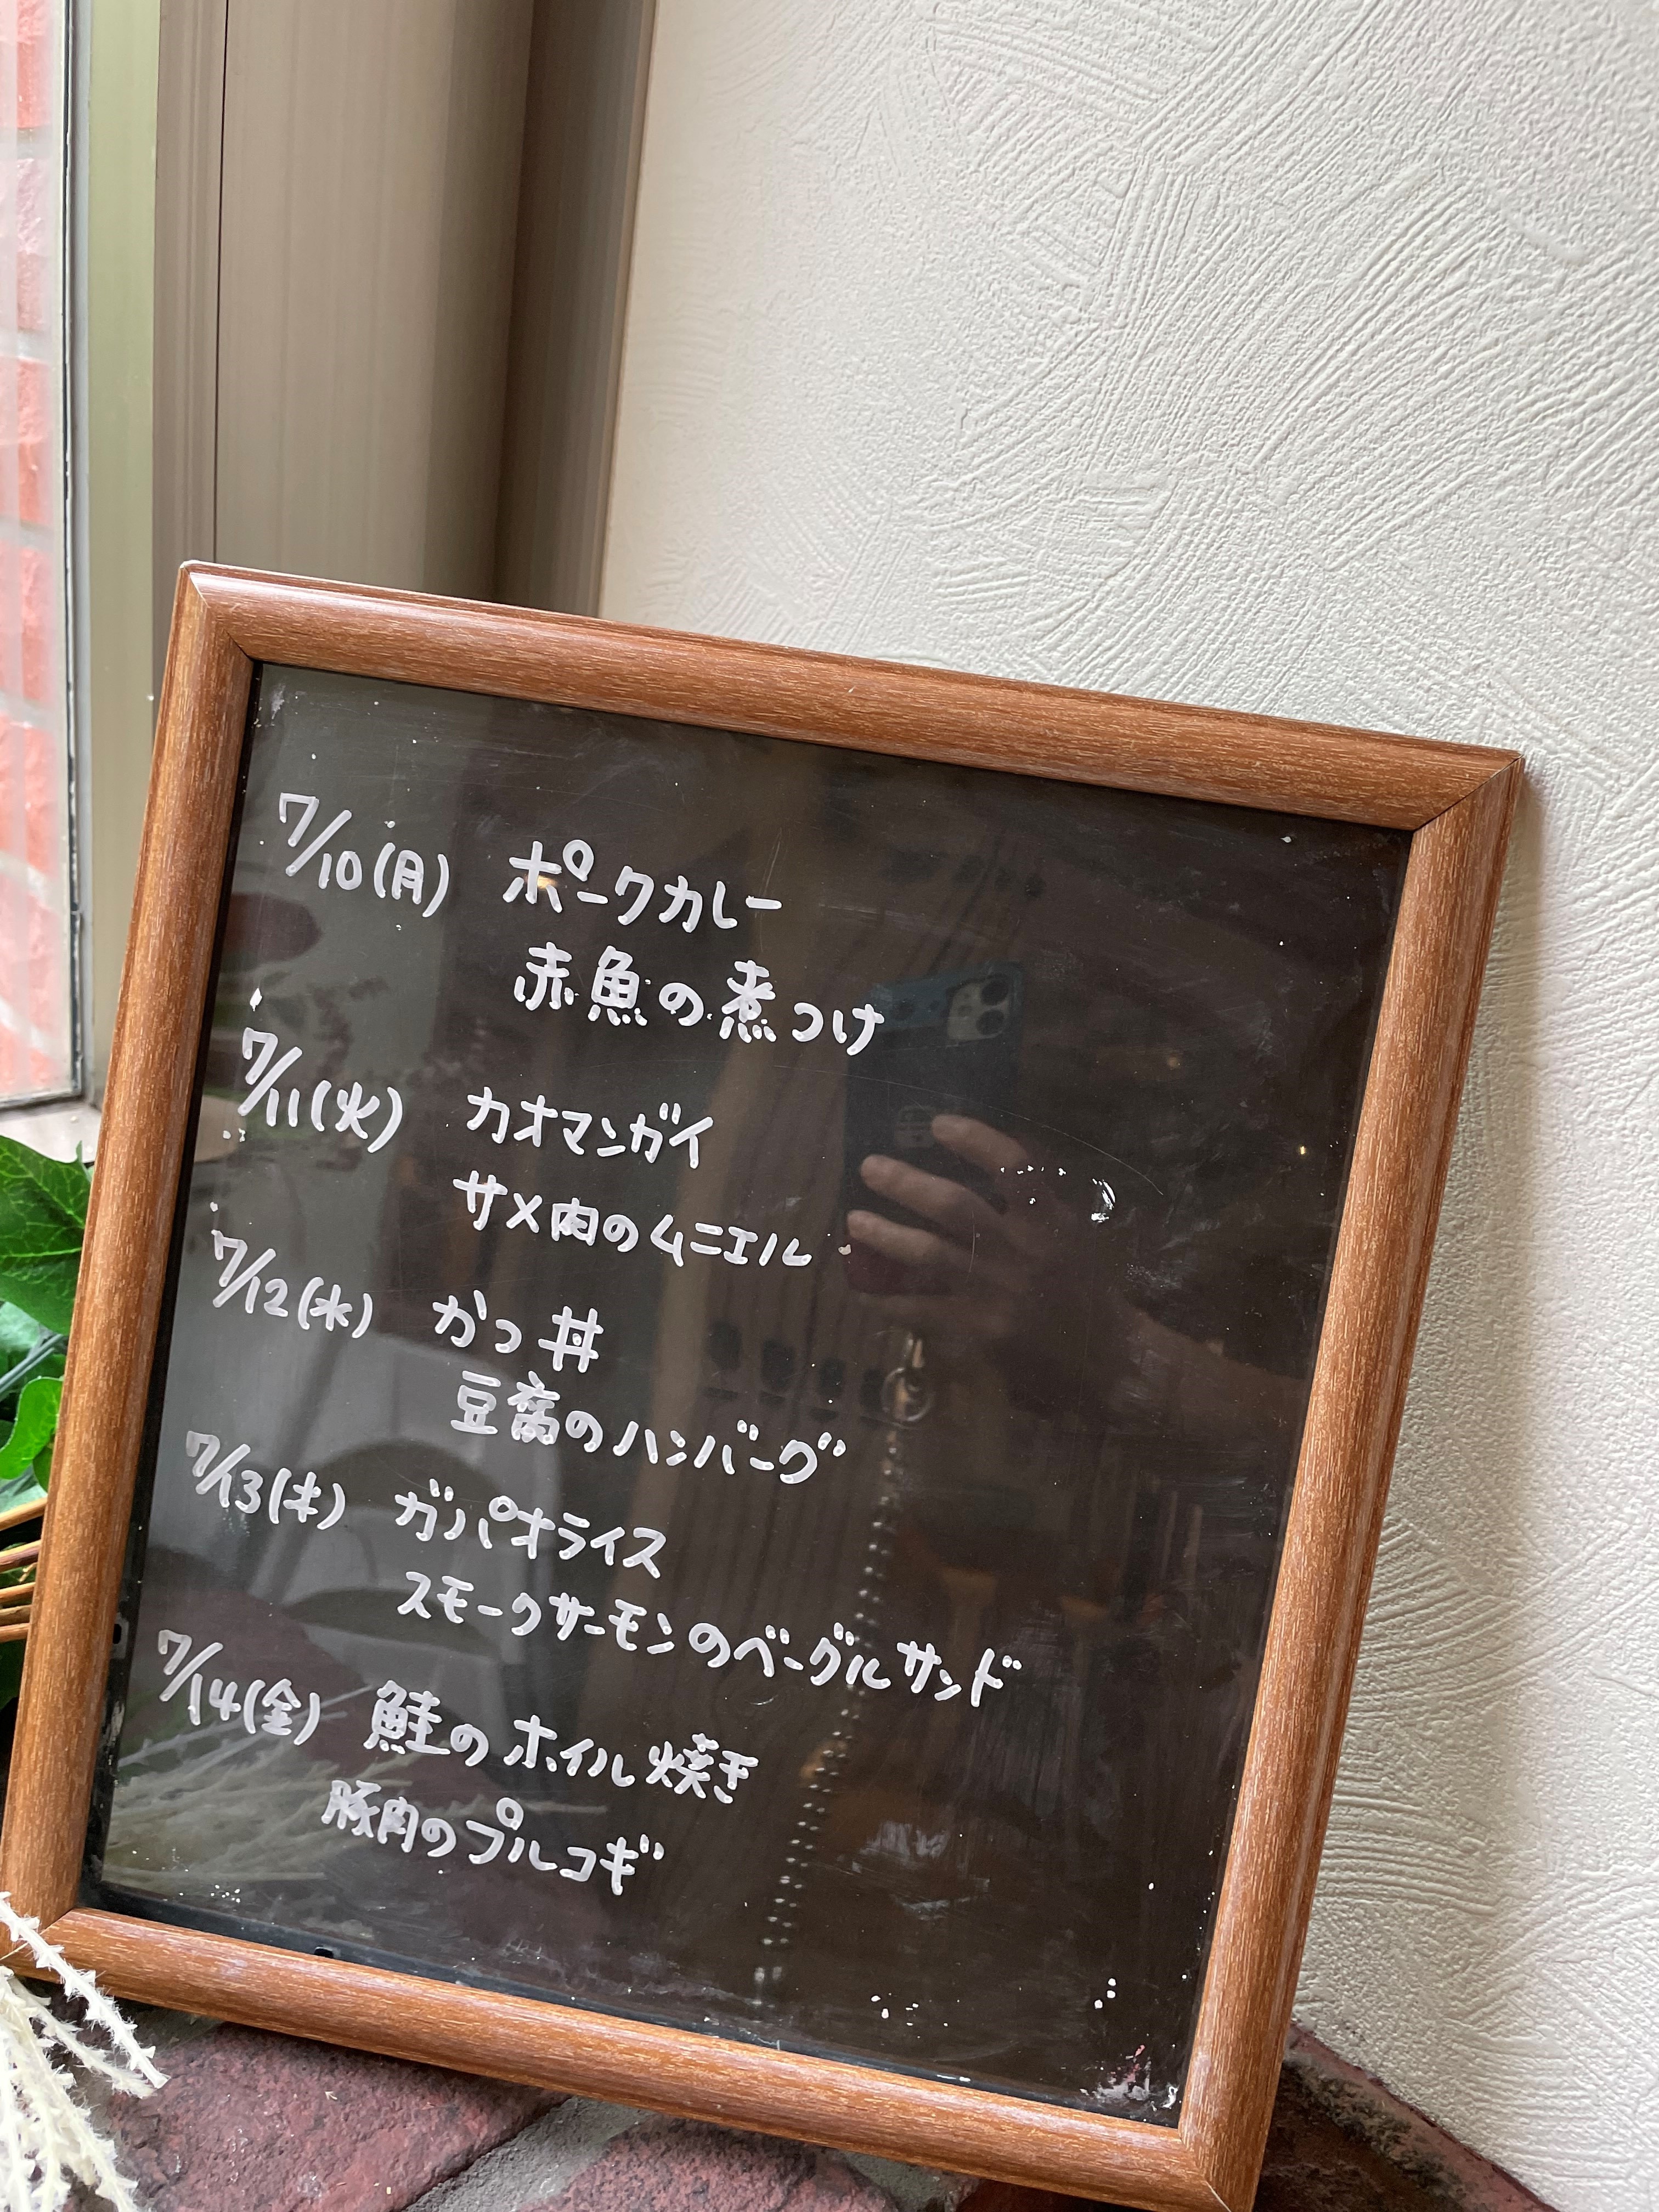 7/10(月) ポークカレー
赤魚の煮つけ
7/11(火) カオマンガイ
サメ肉のムニエル
7/12(水) かつ丼
豆腐のハンバーグ
7/13(木) ガパオライス
スモークサーモンのベーグルサンド
7/14(金) 鮭のホイル焼き
豚肉のプルコギ